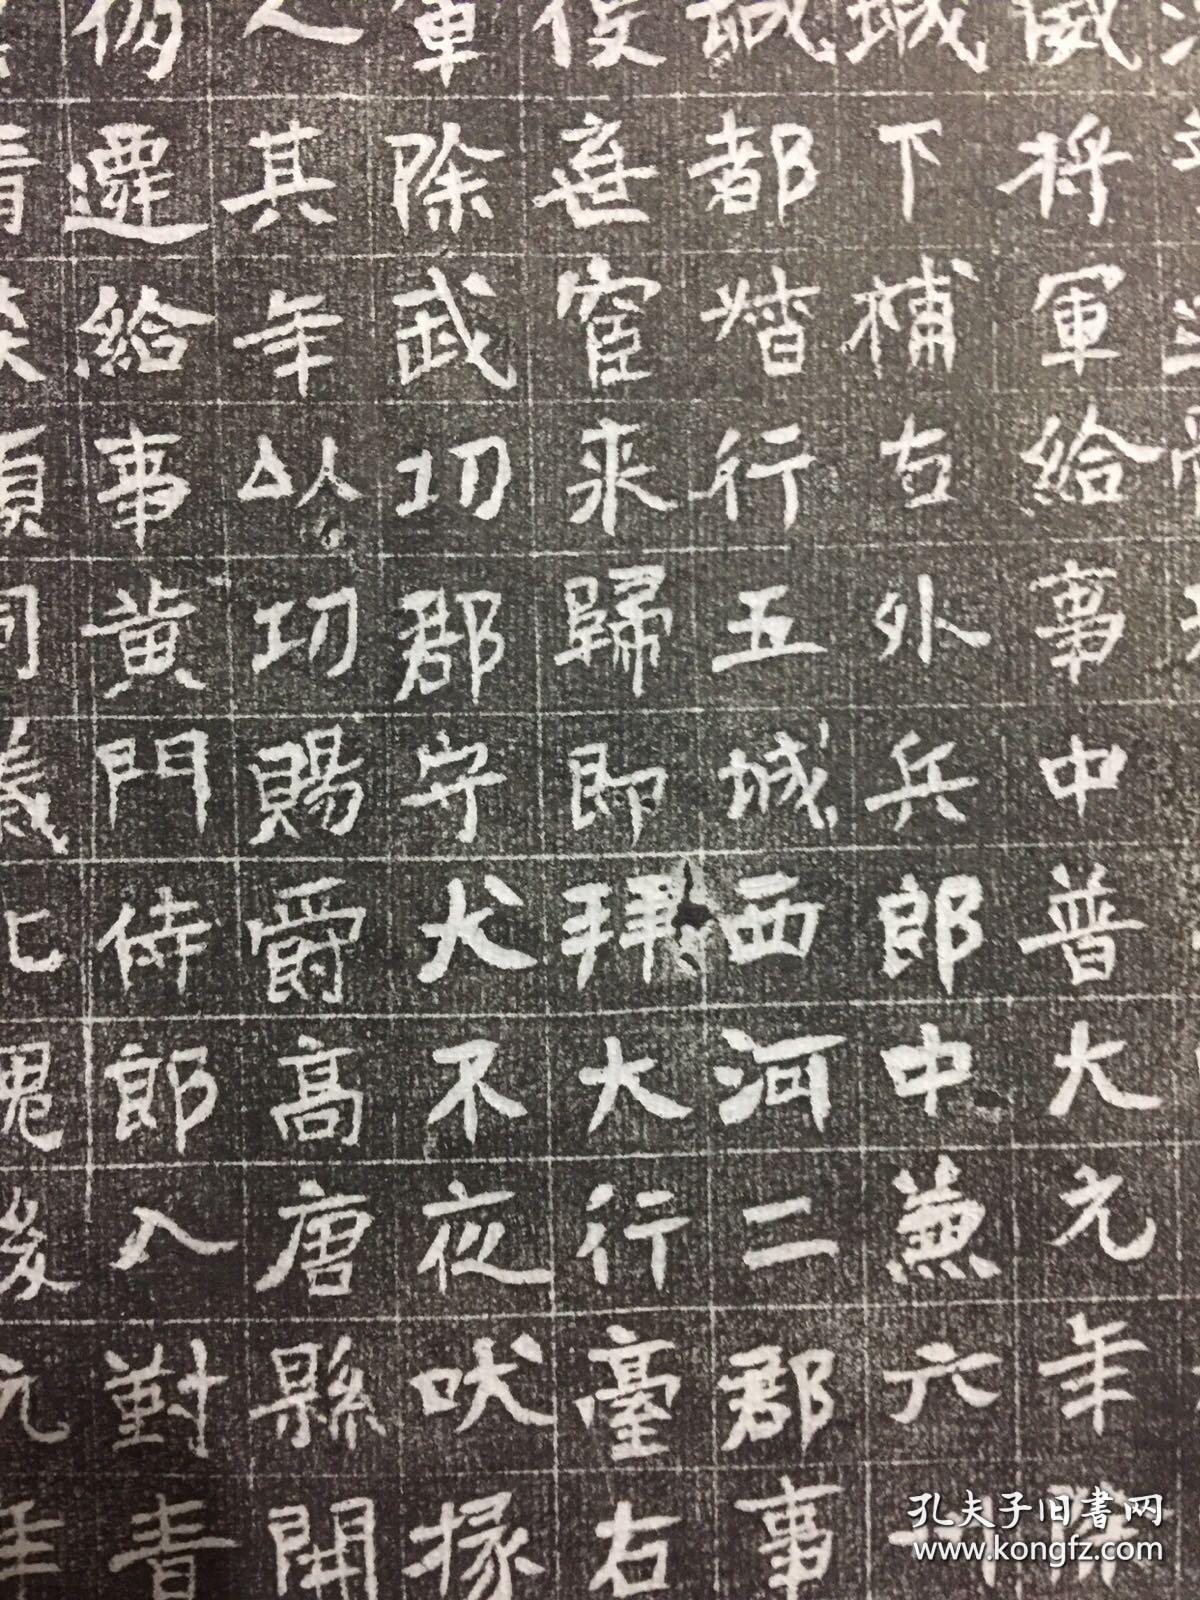 威將軍給事中普大元年除
城下補左外兵郎中兼六
城都督行五城西河二郡事
侯莛賔来歸即拜大行臺右
軍除武功郡守犬不夜吠掾
人其年以功賜爵高唐縣開
仍遷給事黄門侍郎入對青
孔夫子旧书网
www.kongfz.com